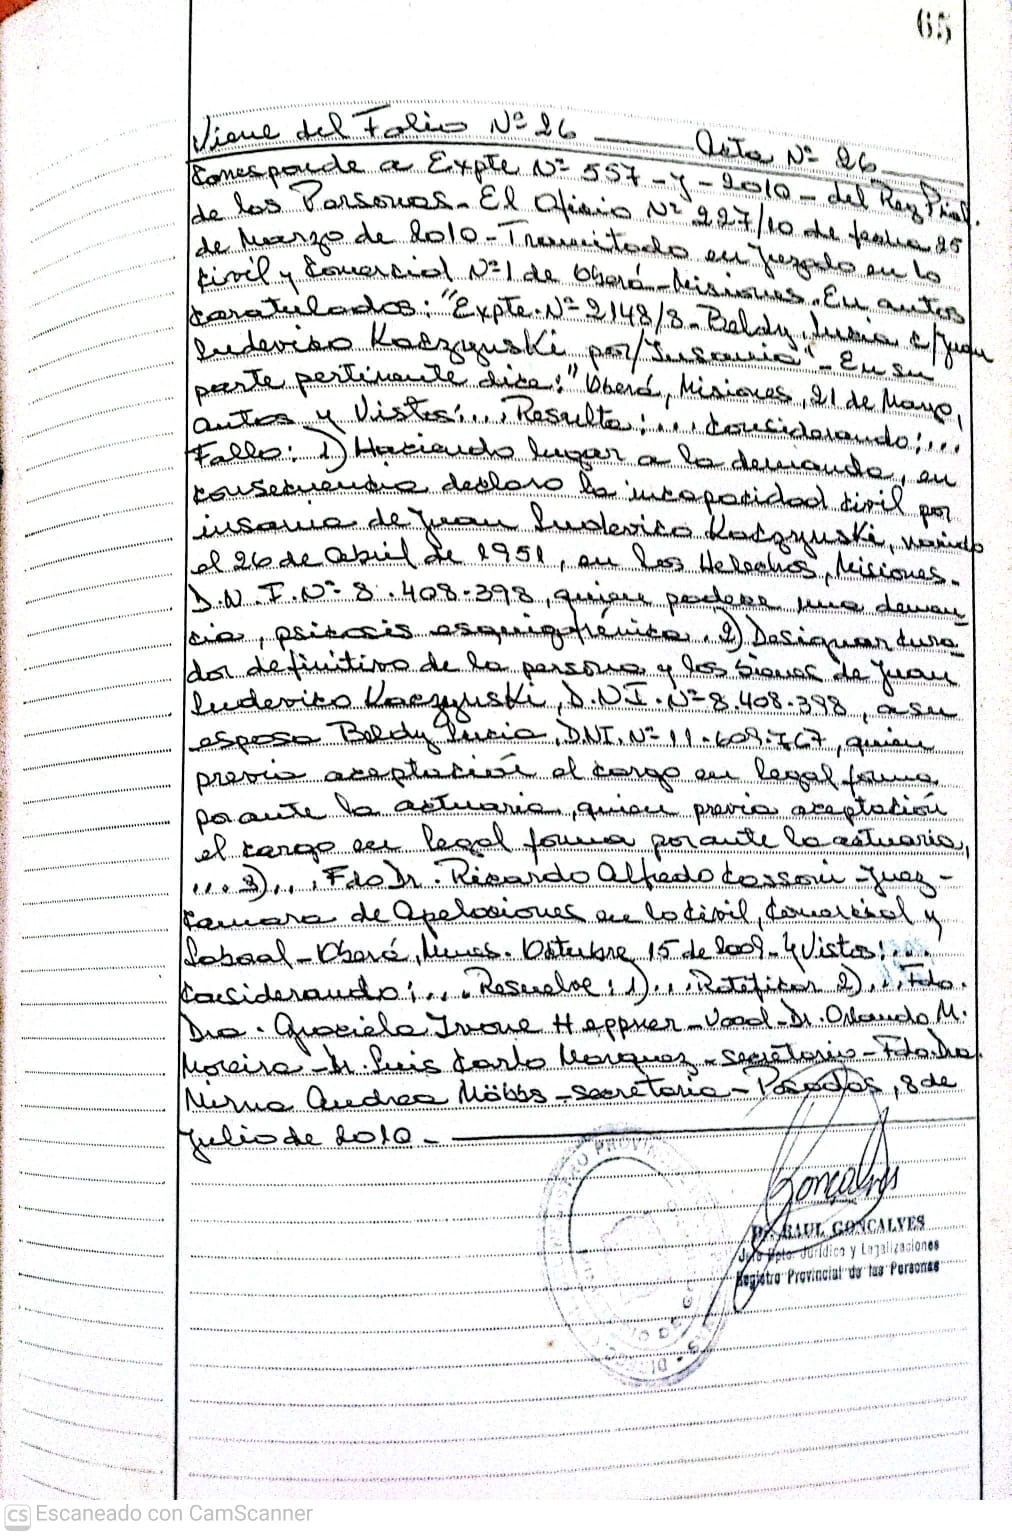 65
Viene del Folio Nº 26 — Acta Nº 26
Corresponde a Expte Nº 557-y-2010- del Reg Pial.
de las Personas. El Oficio Nº 227/10 de fecha 25
de Marzo de 2010 - Tramitado en Juzgado en lo
Civil y Comercial Nº 1 de Oberá - Misiones. En autos
caratulados: "Expte. Nº 2148/8 - Boldy, Lucia c/ Juan
Ludovico Kaczynski por/Insania" - En su
parte pertinente dice: "Oberá, Misiones, 21 de Mayo,
autos y Vistos: ... Resulta: ... Considerando: ...
Fallo: 1) Haciendo lugar a la demanda, en
consecuencia declaro la incapacidad civil por
insania de Juan Ludovico Kaczynski, nacido
el 26 de abril de 1951, en Los Helechos, Misiones.
D.N.I. Nº 8.408.398, quien padece una demen
cia, psicosis esquizofrénica. 2) Designar cura
dor definitivo de la persona y los bienes de Juan
Ludovico Kaczynski, D.N.I. Nº 8.408.398, a su
esposa Boldy Lucia, DNI. Nº 11.609.767, quien
previa aceptación el cargo en legal forma
por ante la actuaria, quien previa aceptación
el cargo en legal forma por ante la actuaria,
... 3)... Fdo Dr. Ricardo Alfredo Cassoni - Juez -
Camara de Apelaciones en lo Civil, Comercial y
Laboral - Oberá, Mnes. Octubre, 15 de 2009 - Y Vistos: ...
Considerando: ... Resuelve: 1)... Ratificar 2)... Fdo.
Dra. Graciela Ivone Heppner - Vocal - Dr. Orlando M.
Moreira - Dr. Luis Carlo Marquez - secretario - Fdo Dra.
Mirna Andrea Möbbs - secretaria - Posadas, 8 de
Julio de 2010 -
Goncalves
Dr. RAUL GONCALVES
Jefe Dpto. Jurídico y Legalizaciones
Registro Provincial de las Personas
CS Escaneado con CamScanner